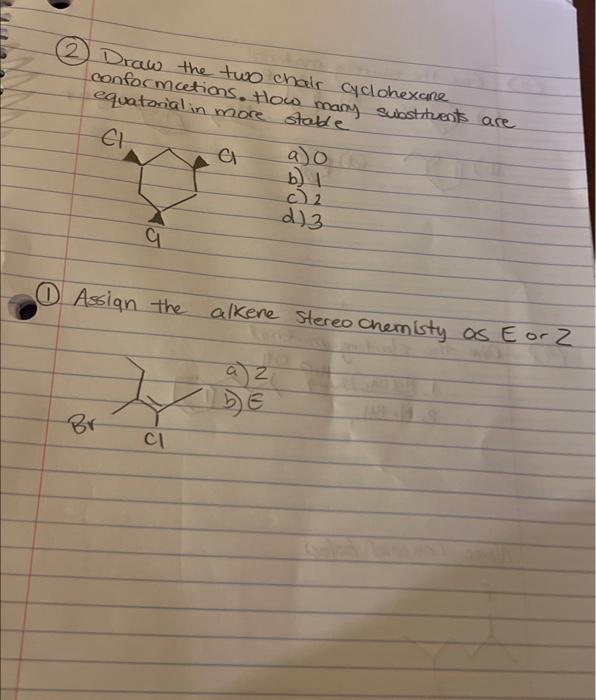 ② Draw the two chair cyclohexane
conformcetions. How many substituents are
equatorial in more stable
Cl
Cl
a) 0
b) 1
c) 2
d) 3
Cl
① Assign the alkene stereo chemisty as E or Z
a) Z
b) E
Br
Cl